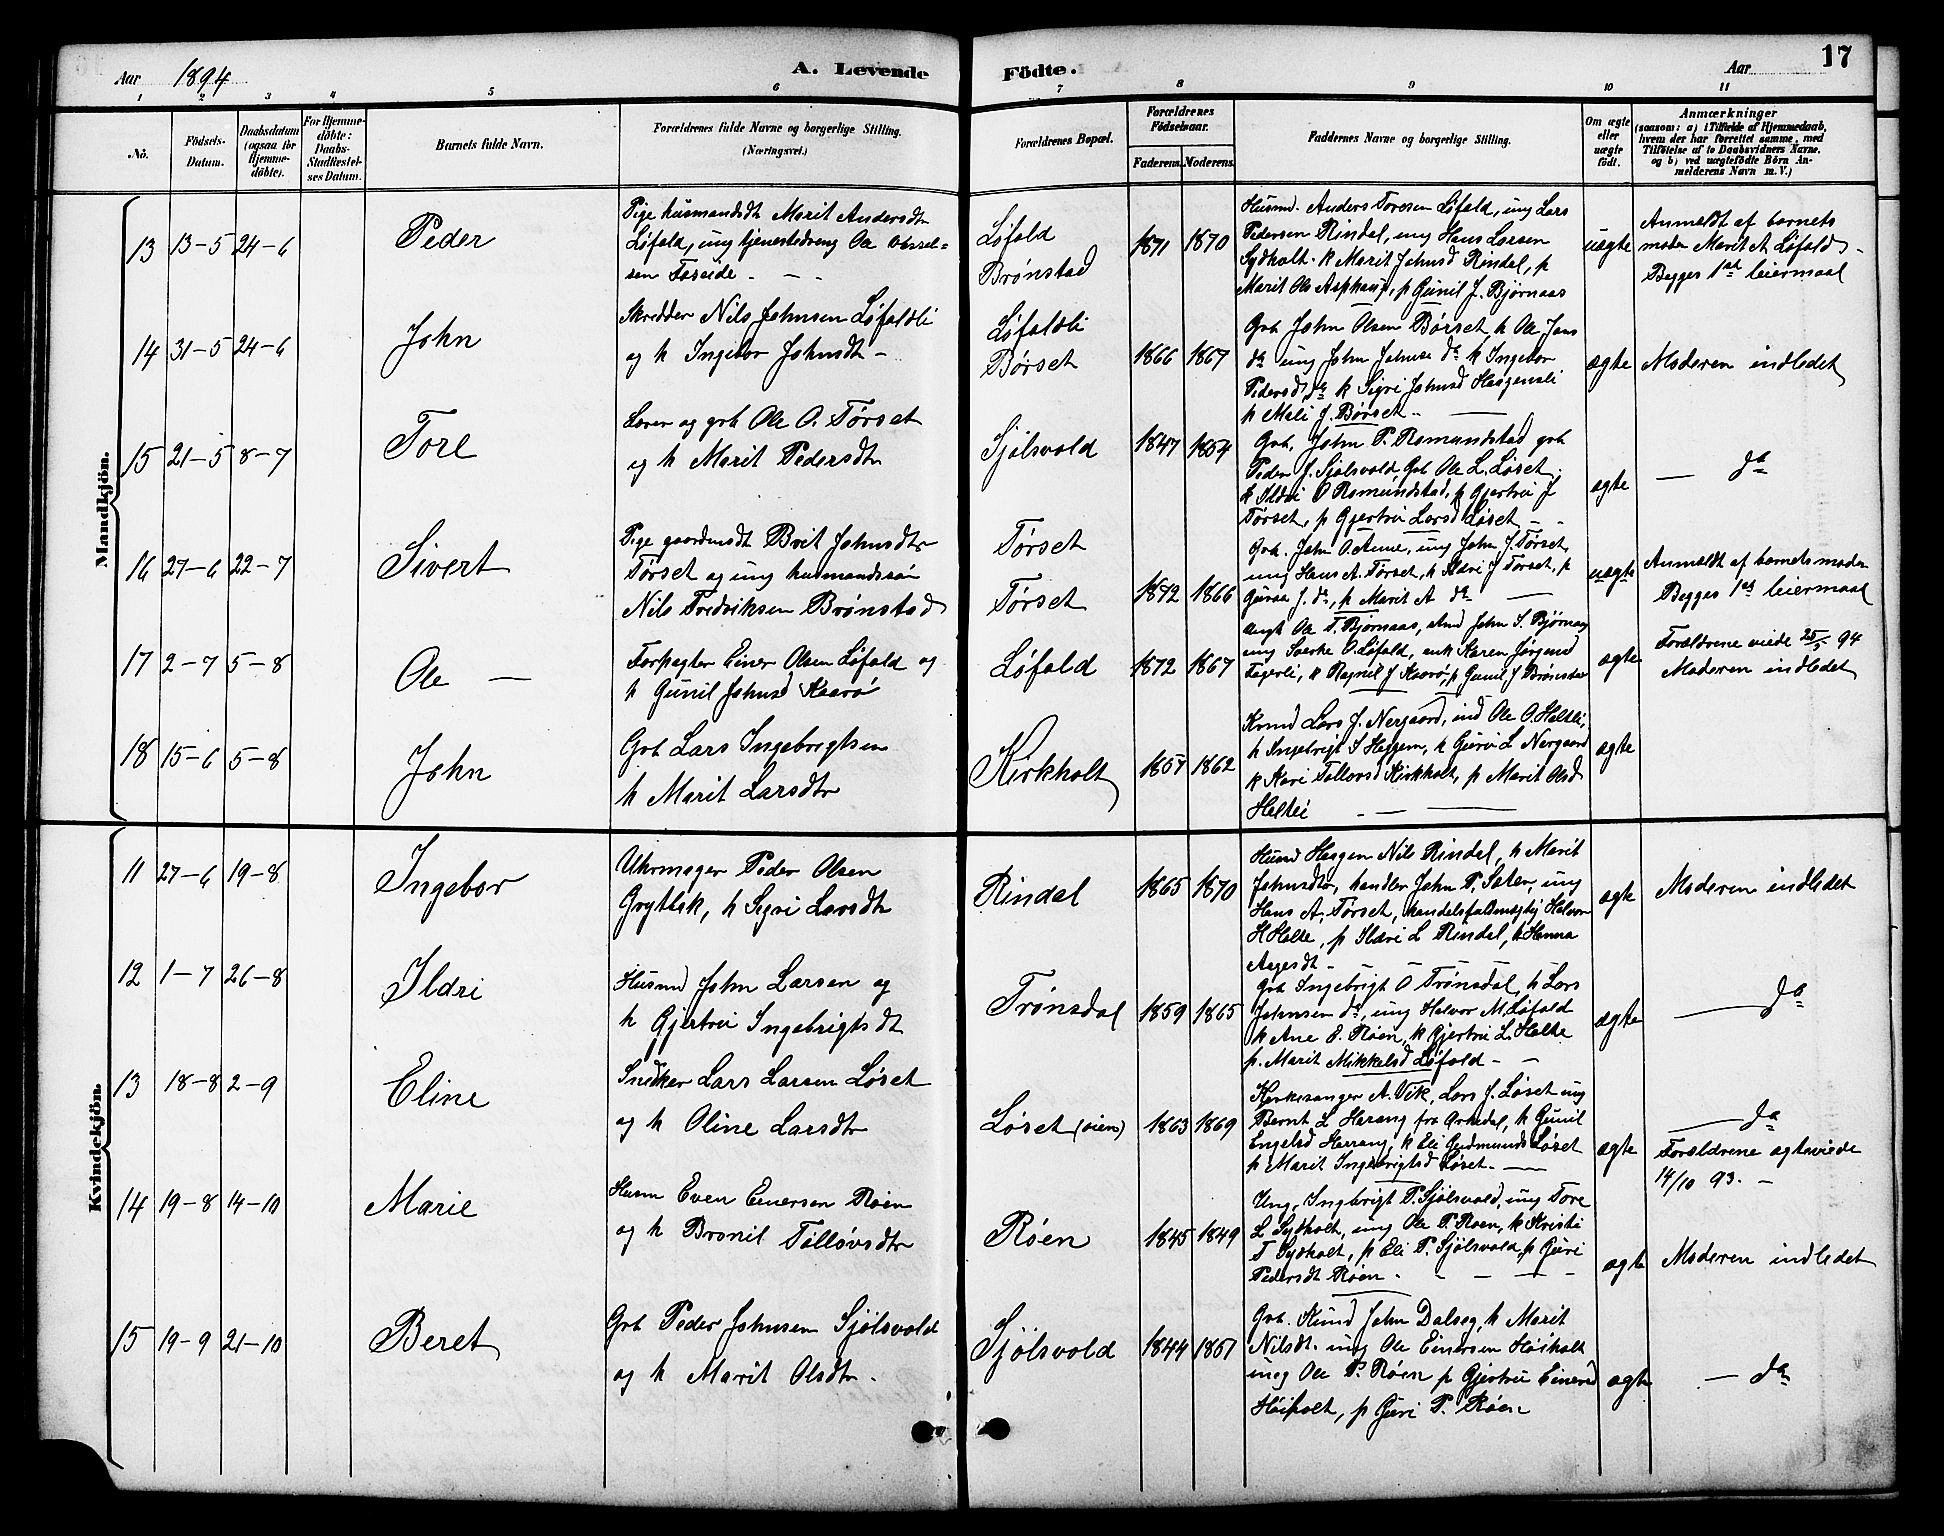 Aar 1894
A. Levende Födte.
Aar
17
1 2 3 4 5 6 7 8 9 10 11
No.
Födsels-
Datum.
Daabsdatum
(ogsaa for
Hjemme-
döbte).
For Hjemme-
döbte:
Daabs-
Stadfæstel-
ses Datum.
Barnets fulde Navn.
Forældrenes fulde Navne og borgerlige Stilling.
(Næringsvei.)
Forældrenes Bopæl.
Forældrenes
Födselsaar.
Faderens. Moderens.
Faddernes Navne og borgerlige Stilling.
Om ægte
eller
uægte
födt.
Anmærkninger
(saasom: a) i Tilfælde af Hjemmedaab,
hvem der har forrettet samme, med
Tilföielse af to Daabsvidners Navne.
og b) ved uægtefödte Börn An-
melderens Navn m. V.)
Mandkjön.
13 13-5 24-6
Peder
Pige husmandsdt Marit Andersdt
Løfald, ung tjenestedreng Ole
sen
Løfald
Brønstad
1871 1870
Husmd. Anders Toresen Løfald, ung Lars
Pedersen Rindal, ung Hans Larsen
Sydholt. k Marit Johnsd Rindal, p
Marit Ols Asphaug, p Gunil J. Bjørnaas
uægte
Anmeldt af barnets
moder Marit A Løfald -
Begges 1ste leiermaal
14 31-5 24-6
John
Skredder Nils Johnsen Løfaldli
og k Ingebor Johnsdt -
Løfaldli
Børset
1866 1867
Grb John Olsen Børset, k Ole Jons
do ung John Johnse do k Ingebor
Pedersd, do k Sigri Johnsd
p Mali J. Børset -
ægte
Moderen indledet
15 21-5 8-7
Tore
Lærer og grb Ole O. Tørset
og k Marit Pedersdt
Sjølsvold
1847 1854
Grb. John P. Romundstad grb
Peder J. Sjølsvold Grb Ole L. Løset.
k Ildri O Romundstad, p Gjertru J
Tørset, p Gjertru Larsd Løset -
ægte
— do
16 27-6 22-7
Sivert
Pige gaardmsdt Brit Johnsdtr
Tørset og ung husmandssøn
Nils Fredriksen Brønstad
Tørset
Tørset
1872 1866
Grb. John O. Aune, ung John J. Tørset,
ung Hans A. Tørset, k Ildri J Tørset, p
J. do, p Marit A do —
uægte
Anmeldt af barnets moder
Begges 1ste leiermaal
17 2-7 5-8
Ole —
Forpagter Einer Olsen Løfald og
k Gunil Johnsd Kaarø
Løfald
1872 1867
Ole T. Bjørnaas, John S. Bjørnaas
ung Sverke O. Løfald, enk Karen Jørgend
Fagerli, k Ragnil J Kaarø, p Gunil J Brønstad
ægte
Forældrene viede 25/5 94
Moderen indledet
18 15-6 5-8
John
Grb Lars Ingebrigtsen
k Marit Larsdtr
Kirkholt
1857 1862
Lars J. Nergaard, ind Ole O. Heltli,
k Ingebrigt S Heggem, k Guru L Nergaard
k Kari Tollovsd Kirkholt, p Marit Olsd
ægte
Kvindekjön.
11 27-6 19-8
Ingebor
Uhrmager Peder Olsen
Grytbak, k Sigri Larsdt
Rindal
1865 1870
Nils Rindal, k Marit
Johnsdtr, handler John P. Sæter, ung
Hans A. Tørset, Halvor
H Holte, p Ildri L Rindal, k Hanna
Aagesdt -
ægte
Moderen indledet
12 1-7 26-8
Ildri
Husmd John Larsen og
k Gjertru Ingebrigtsdt
Trønsdal
1859 1865
Grb Ingebrigt O Trønsdal, k Lars
Johnsen do, ung Halvor M. Løfald
k Ane E. Røen, k Gjertru L. Holte
p. Marit Mikkelsd Løfald -
ægte
— do
13 18-8 2-9
Eline
Snedker Lars Larsen Løset
og k Oline Larsdtr
Løset (øien)
1863 1869
Kirkesanger A. Vik, Lars J. Løset ung
Bernt L Harang fra Orkedal, k Gunil
Engelsd Harrang, k Eli Gudmunds Løset
p Marit Ingebrigtsd Løset. —
ægte
— do
Forældrene ægteviede
14/10 93. -
14 19-8 14-10
Marie
Husm Even Einersen Røen
og k Bronil Tølløvsdtr
Røen
1845 1849
Ung. Ingebrigt P. Sjølsvold, ung Tore
L Sydholt, ung Ole P. Røen, k Kristi
T Sydholt, p Eli P. Sjølsvold, p Guri
Pedersdt Røen -
ægte
Moderen indledet
15 19-9 21-10
Beret
Grb Peder Johnsen Sjølsvold
og k Marit Olsdtr.
Sjølsvold
1844 1851
Grb. Knud John Dalseg, k Marit
Nilsdt. ung Ole Einersen Høiholt
ung Ole P. Røen p Gjertru Einersd
Høiholt, p Guri P. Røen
ægte
— do